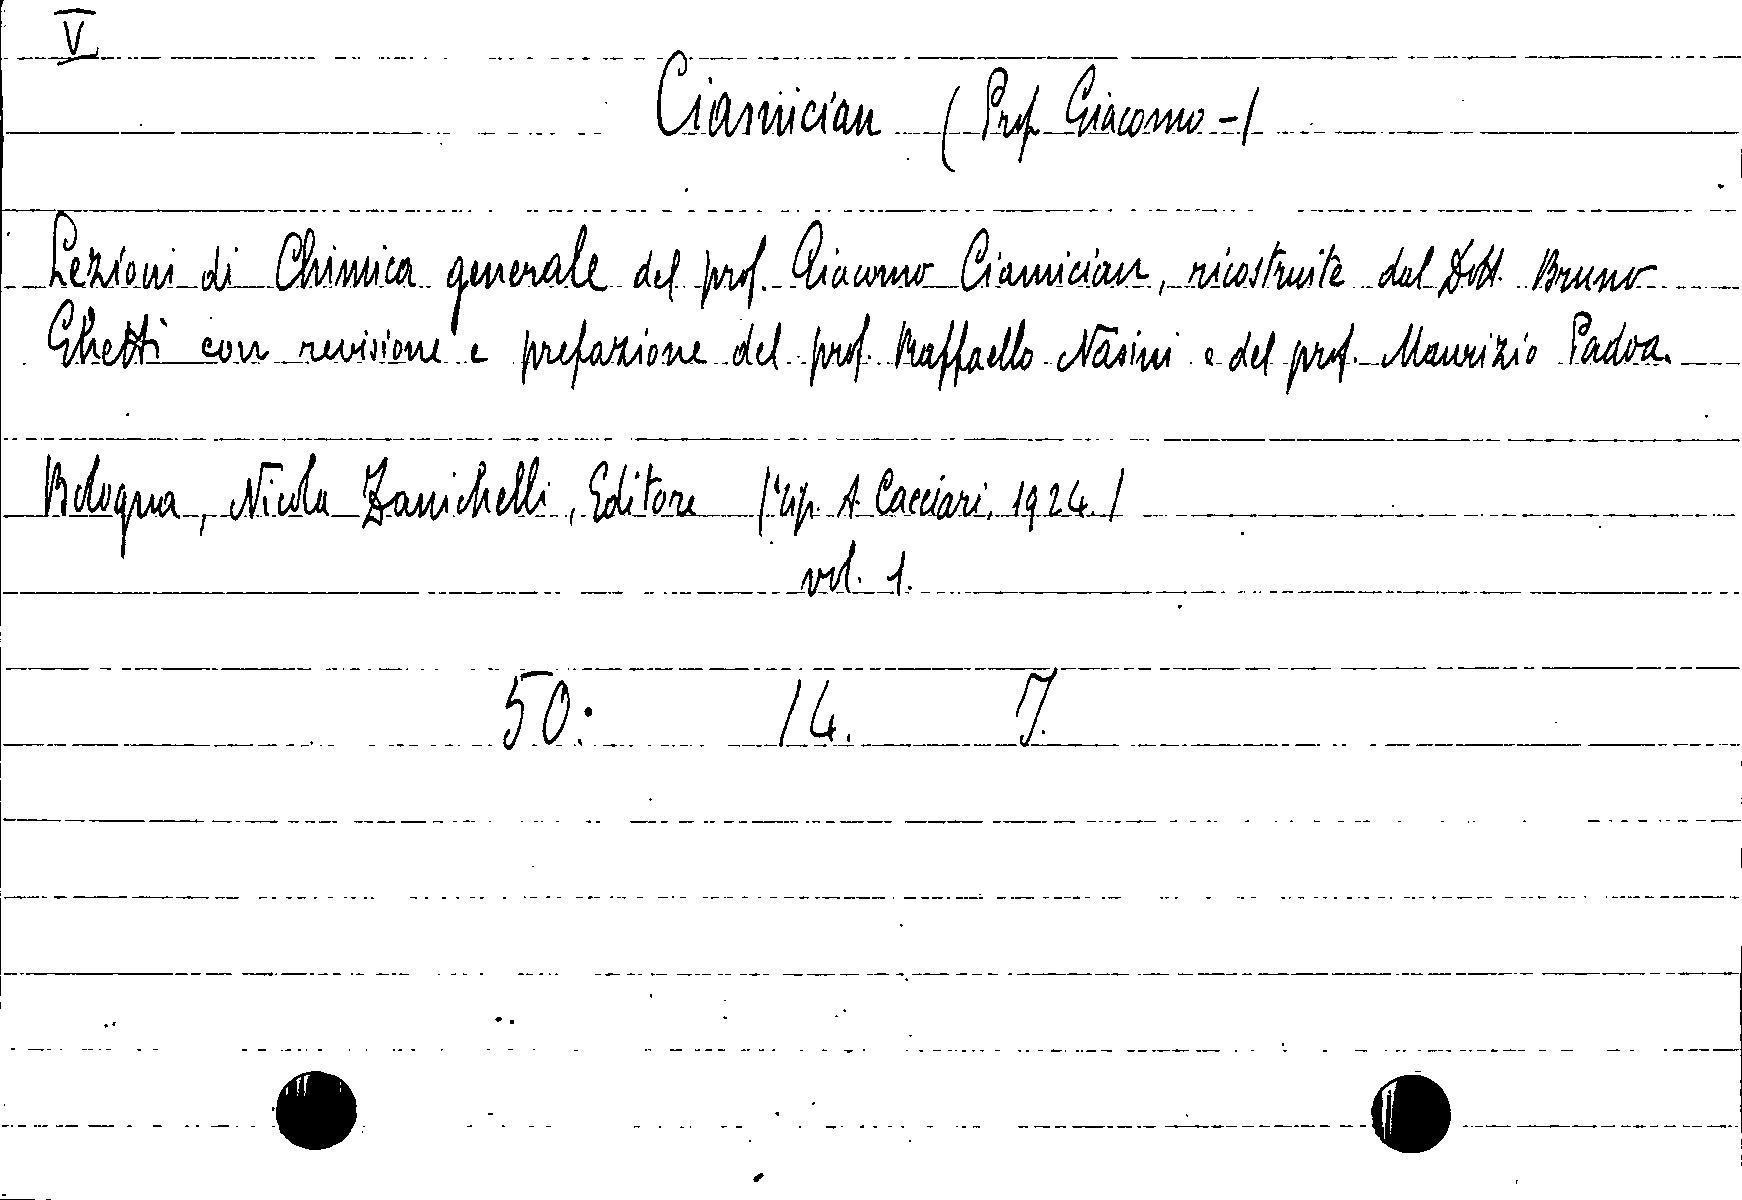 V
Ciamician (Prof. Giacomo -)
Lezioni di Chimica generale del prof. Giacomo Ciamician, ricostruite dal Dott. Bruno
Ghetti con revisione e prefazione del prof. Raffaello Nasini e del prof. Maurizio Padoa.
Bologna, Nicola Zanichelli, Editore (Tip. A. Cacciari, 1924.)
vol. 1.
50: 14. 7.